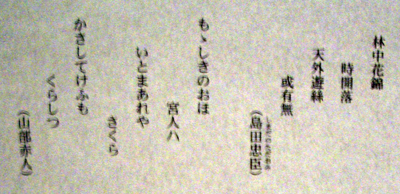 林中花錦
時開落
天外遊絲
或有無
（島田忠臣）
もゝしきのおほ
宮人ハ
いとまあれや
さくら
かさしてけふも
くらしつ
（山部赤人）